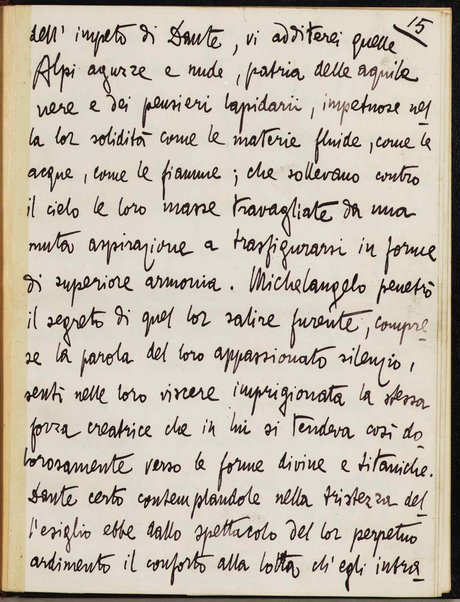 15
dell' impeto di Dante, vi additerei quelle
Alpi aguzze e nude, patria delle aquile
nere e dei pensieri lapidarii, impetuose nel
la lor solidità come le materie fluide, come le
acque, come le fiamme; che sollevano contro
il cielo le loro masse travagliate da una
muta aspirazione a trasfigurarsi in forme
di superiore armonia. Michelangelo penetrò
il segreto di quel lor salire furente, compre-
se la parola del loro appassionato silenzio,
sentì nelle loro viscere imprigionata la stessa
forza creatrice che in lui si tendeva così do
lorosamente verso le forme divine e titaniche.
Dante certo contemplandole nella tristezza del
l'esiglio ebbe dallo spettacolo del lor perpetuo
ardimento il conforto alla lotta ch'egli intra-